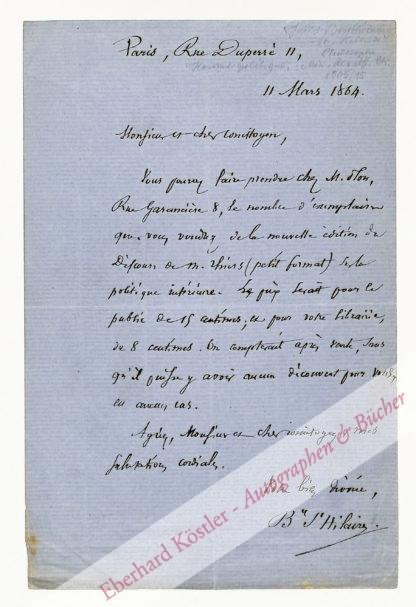 Paris, Rue Duperré 11,
11 Mars 1864.
Monsieur et cher concitoyen,
Vous pouvez faire prendre chez M. Plon,
Rue Garancière 8, le nombre d'exemplaires
que vous voudrez de la nouvelle édition du
Discours de M. Thiers (petit format) sur la
politique intérieure. Le prix serait pour le
public de 15 centimes, et pour votre librairie,
de 8 centimes. On compterait après vente, sans
qu'il puisse y avoir aucun découvert pour vous,
en aucun cas.
Agréez, Monsieur et cher concitoyen, mes
salutations cordiales.
Votre bien dévoué,
Bmy St Hilaire.
Eberhard Köstler - Autographen & Bücher